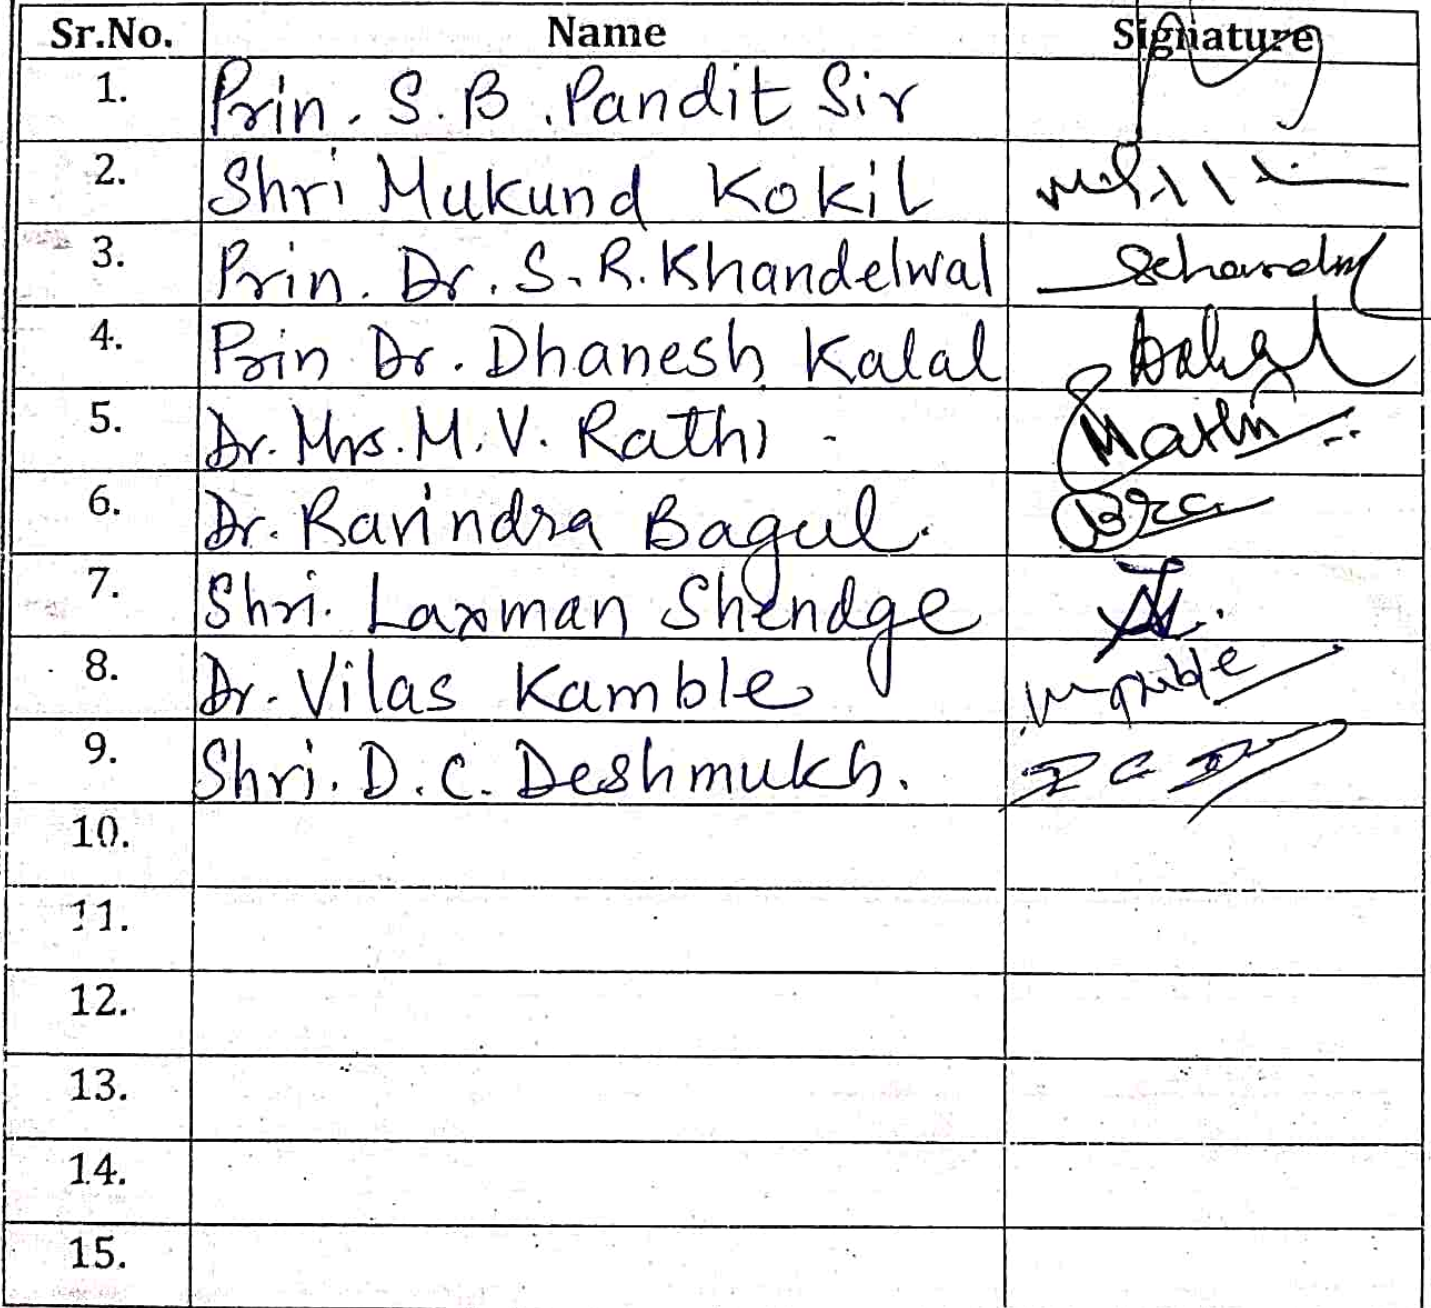 Sr.No. Name Signature
1. Prin. S. B. Pandit Sir
2. Shri Mukund Kokil
3. Prin. Dr. S. R. Khandelwal
4. Prin Dr. Dhanesh Kalal
5. Dr. Mrs. M. V. Rathi -
6. Dr. Ravindra Bagul.
7. Shri. Laxman Shendge
8. Dr. Vilas Kamble
9. Shri. D. C. Deshmukh.
10.
11.
12.
13.
14.
15.